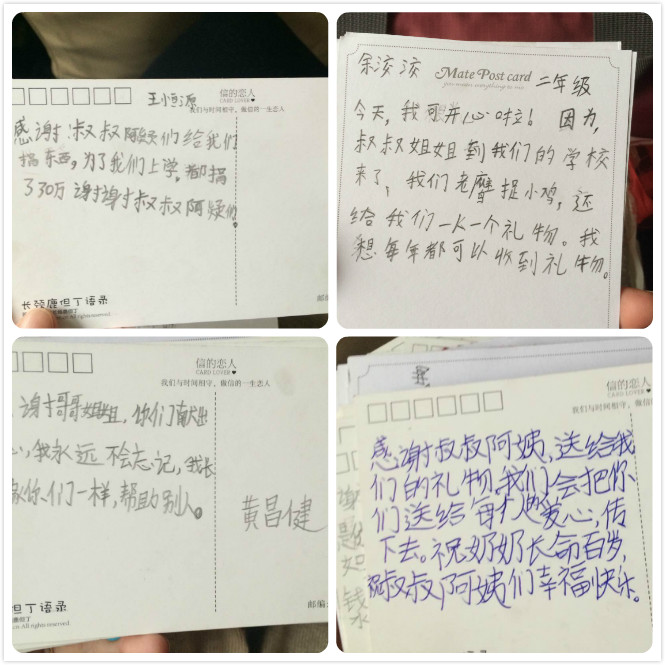 王恒源
信的恋人
CARD LOVER
我们与时间相守，做信的一生恋人
感谢叔叔阿姨们给我们
捐东西，为了我们上学，都捐
了30万谢谢叔叔阿姨们
长颈鹿但丁语录
邮
余汶汶
Mate Post card
二年级
今天，我可开心啦！因为，
叔叔姐姐到我们的学校
来了，我们老鹰捉小鸡，还
给我们一人一个礼物。我
想每年都可以收到礼物。
信的恋人
CARD LOVER
我们与时间相守，做信的一生恋人
谢谢哥哥姐姐，你们献出
心，我永远不会忘记，我长
像你们一样，帮助别人。
黄昌健
但丁语录
All rights reserved.
邮编:
信的恋人
CARD LOVER
我们与时间相守，做信的
感谢叔叔阿姨，送给我
们的礼物，我们会把你
们送给每个人的爱心，传
下去。祝奶奶长命百岁，
祝叔叔阿姨们幸福快乐。